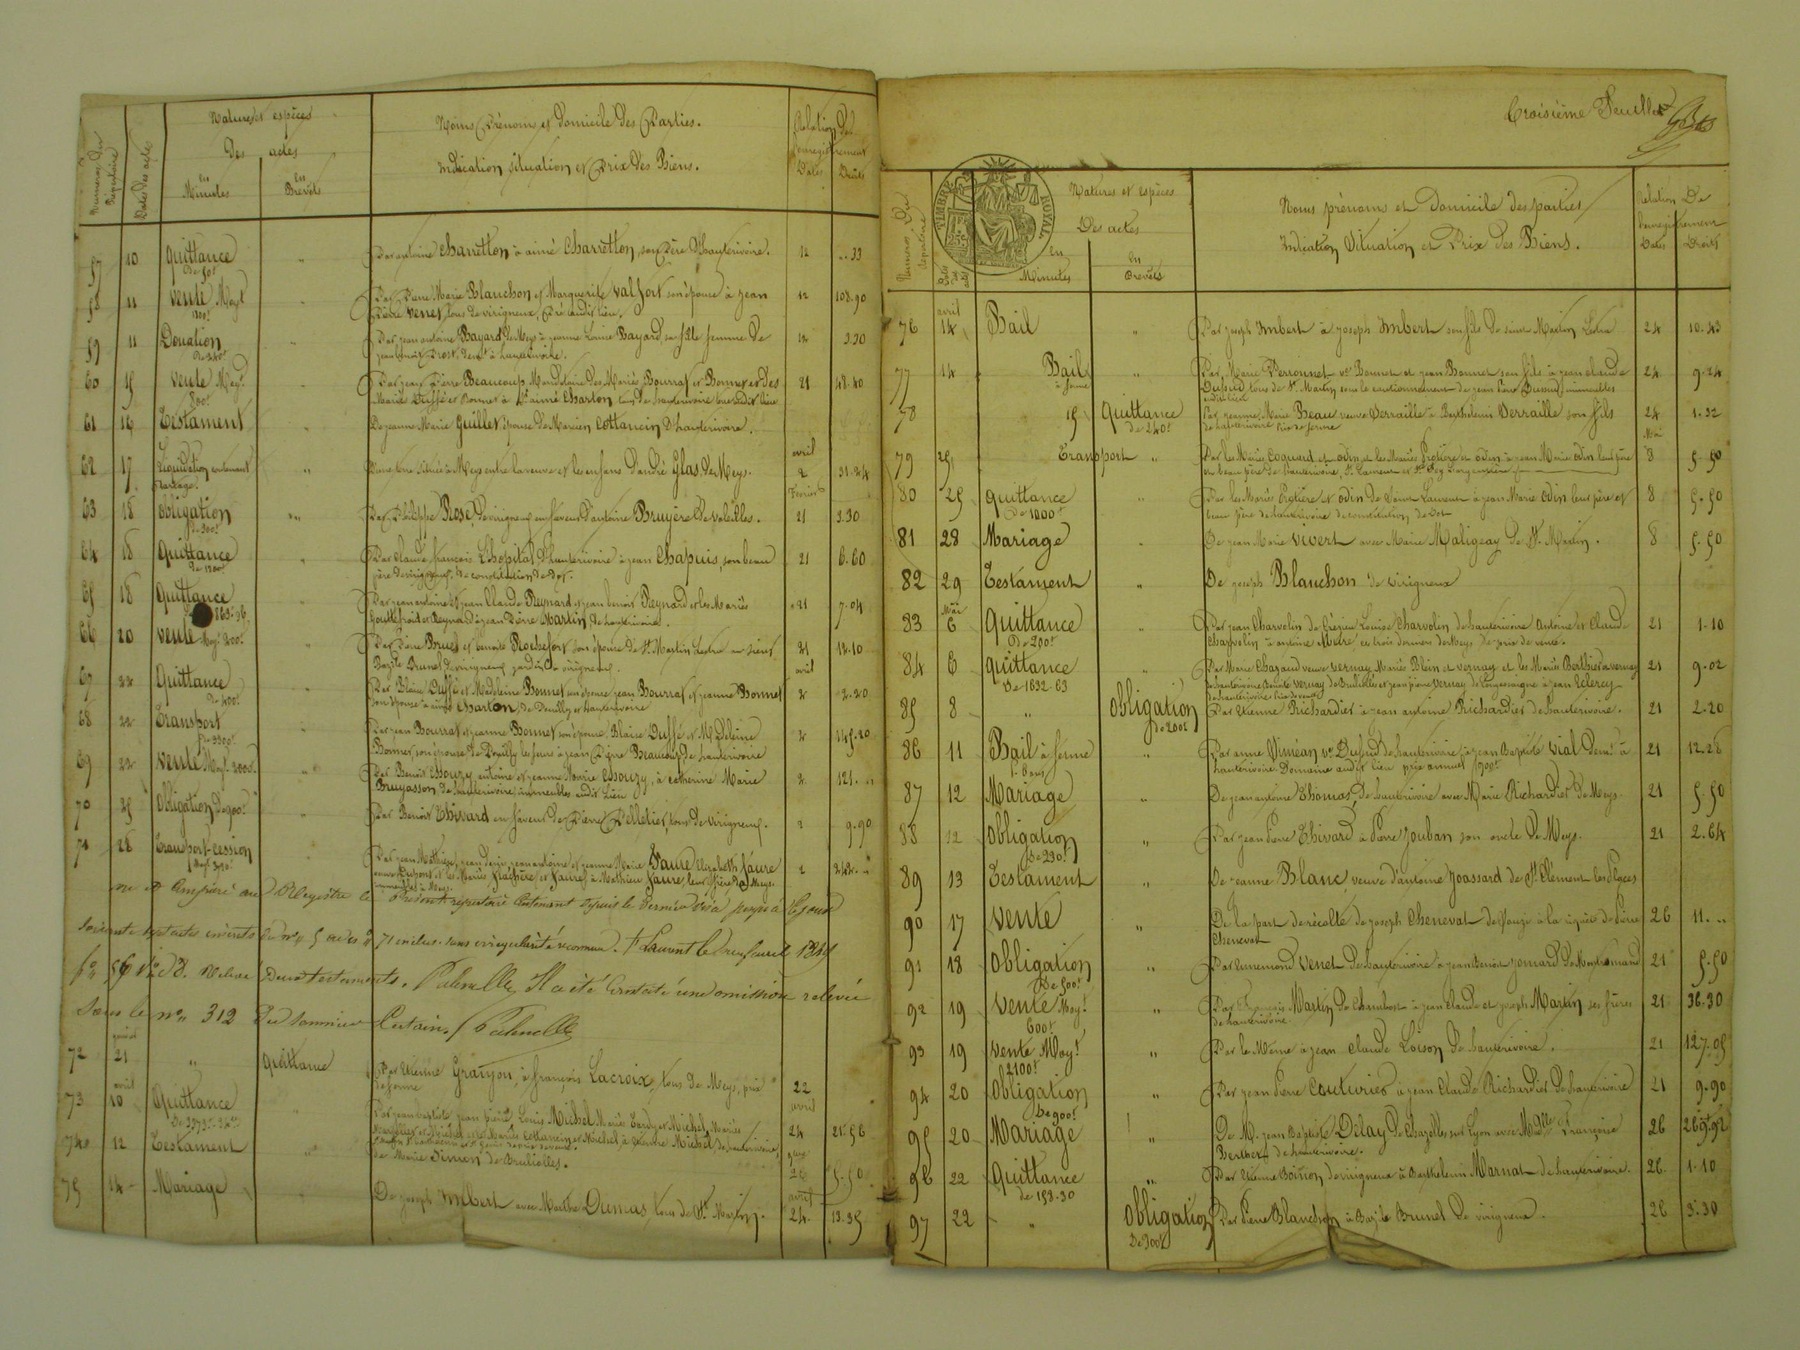 Numéros du Répertoire
Dates des actes
Nature et espèces
Des actes
en Minutes
en Brevets
Noms Prénoms et domicile des Parties.
Indication situation et Prix des Biens.
Relation de l'enregistrement
Dates
Droits
57 10 Quittance de 50f " Par antoine Charretton à aimé Charretton, son Père d'hauterivoire. 12 ..33
58 11 Vente Moyt 1800f " Par Pierre Marie Blanchon et Marguerite Valfort son épouse à Jean
Pierre Venet, tous de virigneux, Pré audit lieu. 12 108.90
59 11 Donation de 240f " Par Jean antoine Bayard de Meys à jeanne Louise Bayard sa fille femme de 12 3.30
60 15 Vente Moyt 800f Par Jean Pierre Beaucoup Mandataire des Mariés Bourrat et Bonnet et des 21 48.40
Mariés Duffé et Bonnet à Sr aimé Charton tous de hauterivoire
61 16 Testament " De Jeanne Marie Guillet épouse de Cottancin d'hauterivoire.
62 17 Liquidation contenant Partage. " D'une terre située à Meys entre la veuve et les enfans d'andré Glas, de Meys. avril 2 31.24
63 18 Obligation de 300f " Par Philippe Rose, de virigneux en faveur d'antoine Bruyère de valeilles. Février 21 3.30
64 18 Quittance de 1200f " Par Claude françois L'hopital d'hauterivoire à jean Chapuis, son beau 21 6.60
père de virigneux, de constitution de dot.
65 18 Quittance Par jean antoine et jean Claude Reynard et jean benoit Reynard et les Mariés 21 7.04
Gouttefroid et Reynard à jean Pierre Martin de hauterivoire.
66 20 Vente Moyt 200f. " Par Pierre Brunel et benoite Rochefort son épouse de St Martin Lestra au sieur 21 12.10
Bazile Brunel de virigneux jardin à virigneux.
67 22 Quittance de 400f " Par Blaise Duffé et Madeleine Bonnet son épouse jean Bourrat et jeanne Bonnet avril 2 2.20
son épouse à aimé Charton, de hauterivoire
68 22 Transport de 3300f " Par jean Bourrat et jeanne Bonnet son épouse, Blaise Duffé et Madeleine 2 145.20
Bonnet, son épouse à jean Pierre Beaucoup de hauterivoire
69 22 Vente Moyt 2000f. " Par Benoit Essouzy, antoine et jeanne Marie Essouzy, à catherine Marie 2 121. "
Bruyasson de hauterivoire, immeubles audit Lieu
70 25 Obligation de 900f. " Par Benoit Thivard en faveur de Pierre Pelletier, tous de virigneux. 2 9.90
71 28 Transport-cession " Par jean Mathieu, jean denis, jean antoine et jeanne Marie Faure, Elizabeth Faure 2
à Mathieu Faure, leur frère de Meys.
Vu et comparé au Registre le Présent répertoire Contenant depuis le Dernier visa jusqu'à ce jour
Soixante sept actes inscrits du no 5 au no 71 inclus. sans irrégularité reconnue. St Laurent le neuf avril 1845
fo 56 Vo Cd 8. Relevé deux testaments. Il a été Constaté une omission relevée
Sous le no 312 du Sommier Certain.
72 janvier 21 " Quittance Par Etienne Granjon, à françois Lacroix, tous de Meys, prix de ferme 22
73 avril 10 Quittance " Par jean baptiste, jean pierre, Louis Michel avril 24 25.56
74 12 Testament " de Marie Simon de Brullioles. 5.50
75 14 Mariage " De Joseph Imbert avec Marthe Dumas tous de St Martin. avril 24 13.35
Troisième Feuillet
TIMBRE ROYAL
Numéros du répertoire
Date des actes
Natures et espèces
Des actes
en Minutes
en Brevets
Noms prénoms et Domicile des parties
Indication Situation et Prix des Biens.
Relation De l'enregistrement
Dates
Droits
76 avril 14 Bail " Par joseph Imbert à joseph Imbert son fils de saint Martin Lestra 24 10.43
77 14 Bail à ferme " Par Marie Perronnet ve Bonnet et jean Bonnet son fils à jean claude 24 9.24
Dussud tous de St Martin, sous le cautionnement de jean Dussud, immeubles
audit lieu
78 15 Quittance de 240f Par jeanne Marie Beau veuve Verraille à Barthélemi Verraille son fils 24 1.32
de hauterivoire Prix de ferme
79 25 Transport " Par les Mariés Coquard et Odin, et les Mariés Protière et odin, à jean Marie odin leur père Mai 8 5.50
ou beau père de hauterivoire, St Laurent et Ste Foy Largentière
80 25 Quittance de 1000f " Par les Mariés Protière et Odin de Saint Laurent à jean Marie Odin leur père et 8 5.50
beau père de hauterivoire de constitution de Dot
81 28 Mariage " De jean Marie Vivert avec Marie Maligeay de St Martin. 8 5.50
82 29 Testament " De joseph Blanchon de virigneux
83 Mai 6 Quittance De 200f " Par jean Charvolin de Grézieu Louise Charvolin de hauterivoire antoine et Claude 21 1.10
Charvolin à antoine ces trois derniers de Meys de prix de vente.
84 6 Quittance De 1632.63 " Par Marie Chazaud veuve Vernay Mariés Blein et Vernay et les Mariés Berthier et Vernay 21 9.02
de hauterivoire Benoite Vernay de Brullioles et jean pierre Vernay de Longessaigne à jean
85 8 " Obligation De 200f Par Etienne Richardier à jean antoine Richardier de hauterivoire. 21 2.20
86 11 Bail à ferme " Par anne Viméan ve Dufud de hauterivoire, à jean Baptiste Vial demt à 21 12.28
hauterivoire. Domaine audit lieu prix annuel 900f
87 12 Mariage " De jean antoine Thomas, de hauterivoire avec Marie Richardier de Meys. 21 5.50
88 12 Obligation De 230f " Par jean Pierre Thivard à Pierre Jouban son oncle De Meys. 21 2.64
89 13 Testament " De jeanne Blanc, veuve d'antoine Joassard de St Clément les Places
90 17 Vente " De la part de récolte de joseph Chenevat de Pouzin à la requête de Pierre 26 11. "
Chenevat
91 18 Obligation De 500f " Par Ennemond Venet de hauterivoire à jean Benoit Jomard de Meys 21 5.50
92 19 Vente Moyt 600f " Par François Martin De Chambost à jean Claude et joseph Martin ses frères 21 36.30
de hauterivoire
93 19 Vente Moyt 2100f " Par le Même à jean Claude Loison De hauterivoire. 21 127.05
94 20 Obligation De 900f " Par jean pierre Couturier à jean Claude Richardier De hauterivoire 21 9.90
95 20 Mariage " De M. jean Baptiste Delay de Chazelles sur Lyon avec Mademelle Françoise 26 269.92
Berthet de hauterivoire.
96 22 Quittance de 158.30 " Par Etienne Boinon de virigneux à Barthélemi Marnat de hauterivoire. 26 1.10
97 22 " Obligation De 300f Par Pierre Blanchon à Bazile Brunel De virigneux. 26 3.30